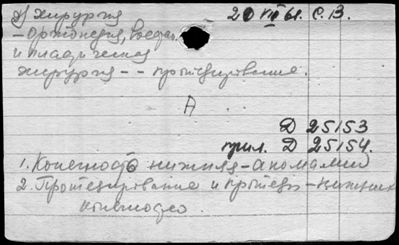 2) Хирургия 20 VII 61. С.В.
- Ортопедия,
и пластическая
хирургия -- протезирование.
А
Д 25153
прил. Д 25154.
1. Конечность нижняя - аномалии
2. Протезирование и протезы - нижних
конечностей.